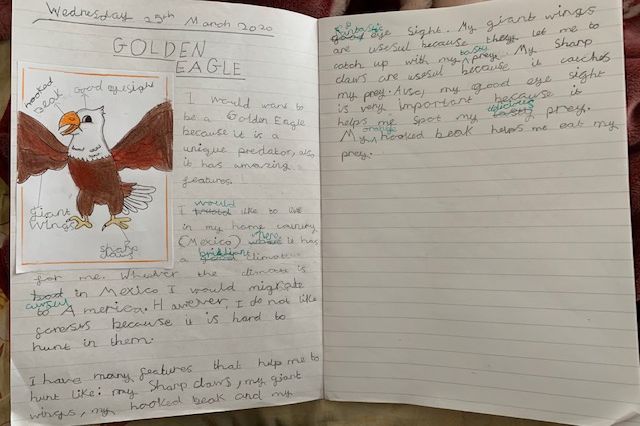 Wednesday 25th March 2020
GOLDEN
EAGLE
hooked
beak
good eyesight
giant
wings
sharp
claws
I would want to
be a Golden Eagle
because it is a
unique predator, also
it has amazing
features.
would
I like to live
in my home country
here
(Mexico) it has
brilliant
a climate
for me. When the climate is
awful
bad in Mexico I would migrate
to America. However, I do not like
forests because it is hard to
hunt in them.
I have many features that help me to
hunt like: my sharp claws, my giant
wings, my hooked beak and my
fantastic
good eye sight. My giant wings
are useful because they let me to
tasty
catch up with my prey. My sharp
claws are useful because it catches
my prey. Also, my good eye sight
is very important because it
delicious
helps me spot my tasty prey.
orange
My hooked beak helps me eat my
prey.